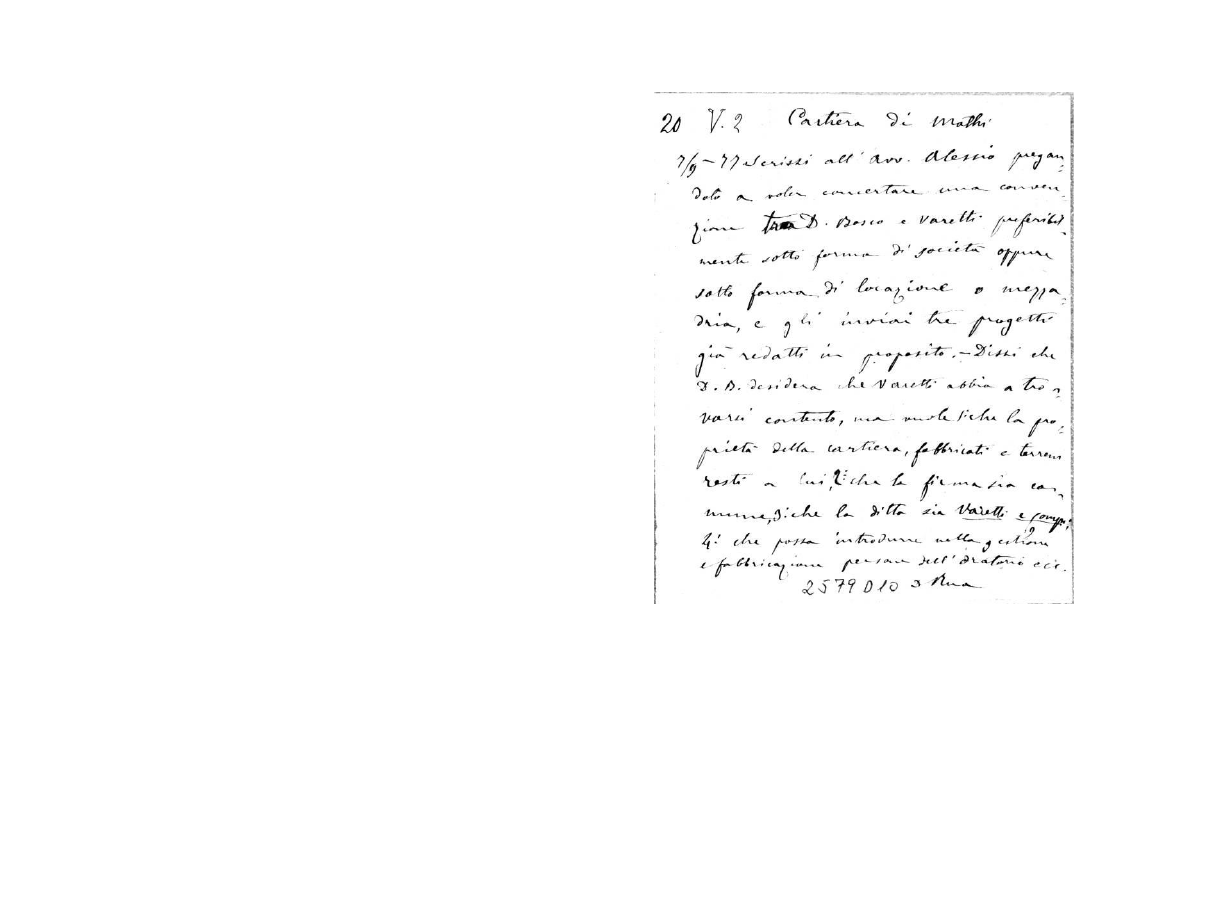 20 V. 2 Cartiera di Mathi
7/9-77 Scrissi all' Avv. Alessio pregan=
dolo a voler concertare una conven=
zione tra D. Bosco e Varetti preferibil=
mente sotto forma di società oppure
sotto forma di locazione o mezza=
dria, e gli inviai tre progetti
già redatti in proposito.- Dissi che
D. B. desidera che Varetti abbia a tro=
varsi contento, ma vuole 1° che la pro=
prietà della cartiera, fabbricati e terreni
resti a lui, 2° che la firma sia co=
mune, 3° che la ditta sia Varetti e Comp.
4° che possa introdurre nella gestione
e fabbricazione persone dell' Oratorio ecc.
2579 D 10 Rua